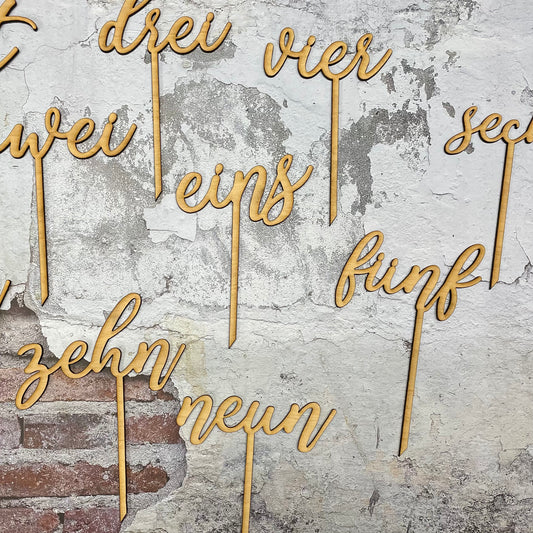 drei
vier
wei
sec
eins
fünf
zehn
neun